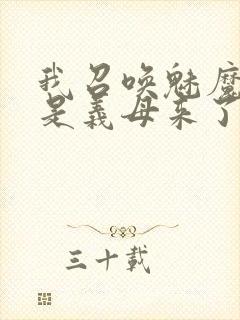 我召唤魅魔
是义母来了
三十载